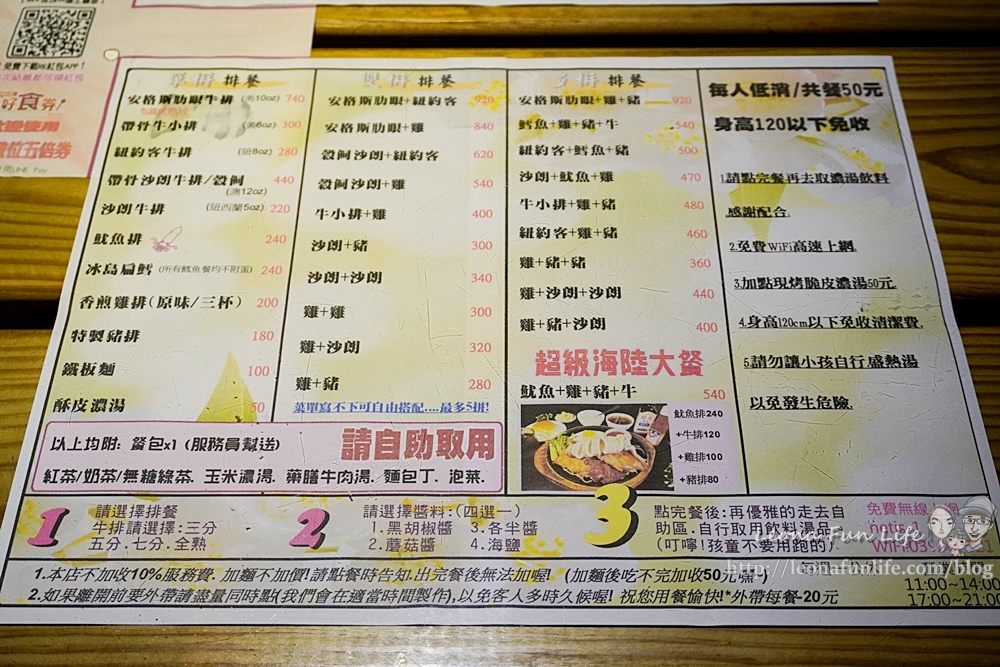 免費下載 紅包APP!
次結帳都可領紅包
好食券!
歡迎使用
數位五倍券
用LINE Pay
單拼 排餐
安格斯肋眼牛排 (美10oz) 740
帶骨牛小排 (美6oz) 300
紐約客牛排 (紐8oz) 280
帶骨沙朗牛排/穀飼 440
(澳12oz)
沙朗牛排 (紐西蘭5oz) 220
魷魚排 240
冰島扁鱈 (所有鱈魚餐均不附蛋) 240
香煎雞排(原味/三杯) 200
特製豬排 180
鐵板麵 100
酥皮濃湯 50
雙拼 排餐
安格斯肋眼+紐約客 920
安格斯肋眼+雞 840
穀飼沙朗+紐約客 620
穀飼沙朗+雞 540
牛小排+雞 400
沙朗+豬 300
沙朗+沙朗 340
雞+雞 300
雞+沙朗 320
雞+豬 280
菜單寫不下可自由搭配....最多5拼!
多拼 排餐
安格斯肋眼+雞+豬 920
鱈魚+雞+豬+牛 540
紐約客+鱈魚+豬 500
沙朗+魷魚+雞 470
牛小排+雞+豬 480
紐約客+雞+豬 460
雞+豬+豬 360
雞+沙朗+沙朗 440
雞+豬+沙朗 400
超級海陸大餐
魷魚+雞+豬+牛 540
魷魚排240
+牛排120
+雞排100
+豬排80
每人低消/共餐50元
身高120以下免收
1.請點完餐再去取濃湯飲料
感謝配合.
2.免費WiFi高速上網.
3.加點現烤脆皮濃湯50元.
4.身高120cm以下免收清潔費.
5.請勿讓小孩自行盛熱湯
以免發生危險.
以上均附: 餐包x1 (服務員幫送) 請自助取用
紅茶/奶茶/無糖綠茶. 玉米濃湯. 藥膳牛肉湯. 麵包丁. 泡菜.
1 請選擇排餐
牛排請選擇:三分
五分.七分.全熟
2 請選擇醬料:(四選一)
1.黑胡椒醬 3.各半醬
2.蘑菇醬 4.海鹽
3 點完餐後:再優雅的走去自
助區.自行取用飲料湯品.
(叮嚀!孩童不要用跑的)
免費無線上網
WiFi:039
Leona Fun Life
http://leonafunlife.com/blog
1.本店不加收10%服務費. 加麵不加價!請點餐時告知.出完餐後無法加喔! (加麵後吃不完加收50元嘿~)
2.如果離開前要外帶請盡量同時點(我們會在適當時間製作),以免客人多時久候喔! 祝您用餐愉快!*外帶每餐-20元
11:00~14:00
17:00~21:00